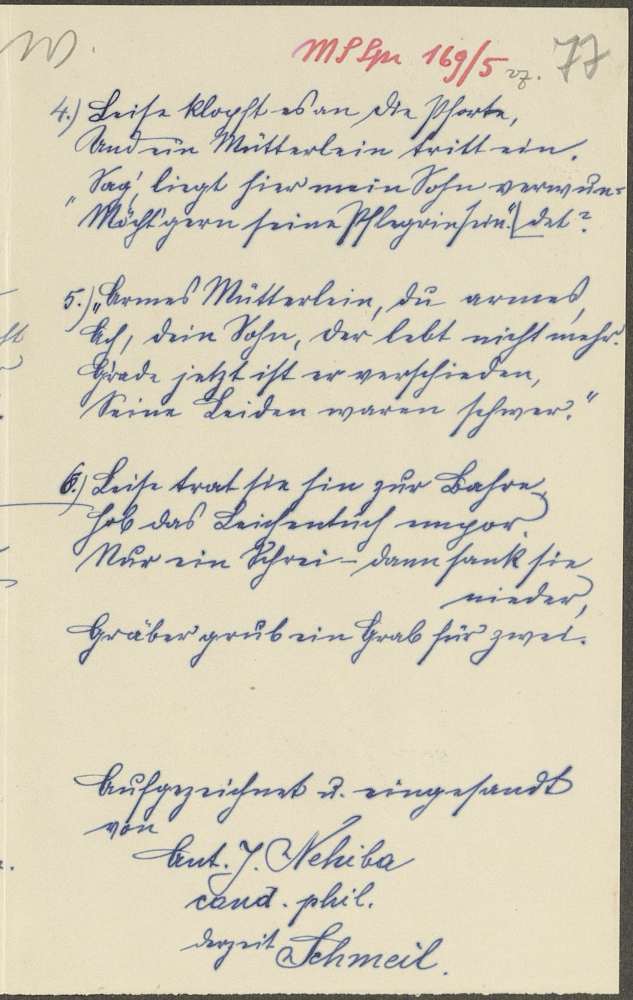 MS Spr 169/5
77
4.) Leise klopft es an die Pforte,
Und ein Mütterlein tritt ein.
"Sag', liegt hier mein Sohn verwun=
Möcht' gern seine Pflegrin sein." (det?
5.) "Armes Mütterlein, du armes,
Ach, dein Sohn, der lebt nicht mehr.
Grade jetzt ist er verschieden,
Seine Leiden waren schwer."
6.) Leise trat sie hin zur Bahre,
Hob das Leichentuch empor.
Nur ein Schrei – dann sank sie
nieder,
Gräber grub ein Grab für zwei.
Aufgezeichnet u. eingesandt
von
Ant. J. Nehiba
cand. phil.
derzeit Schmeil.